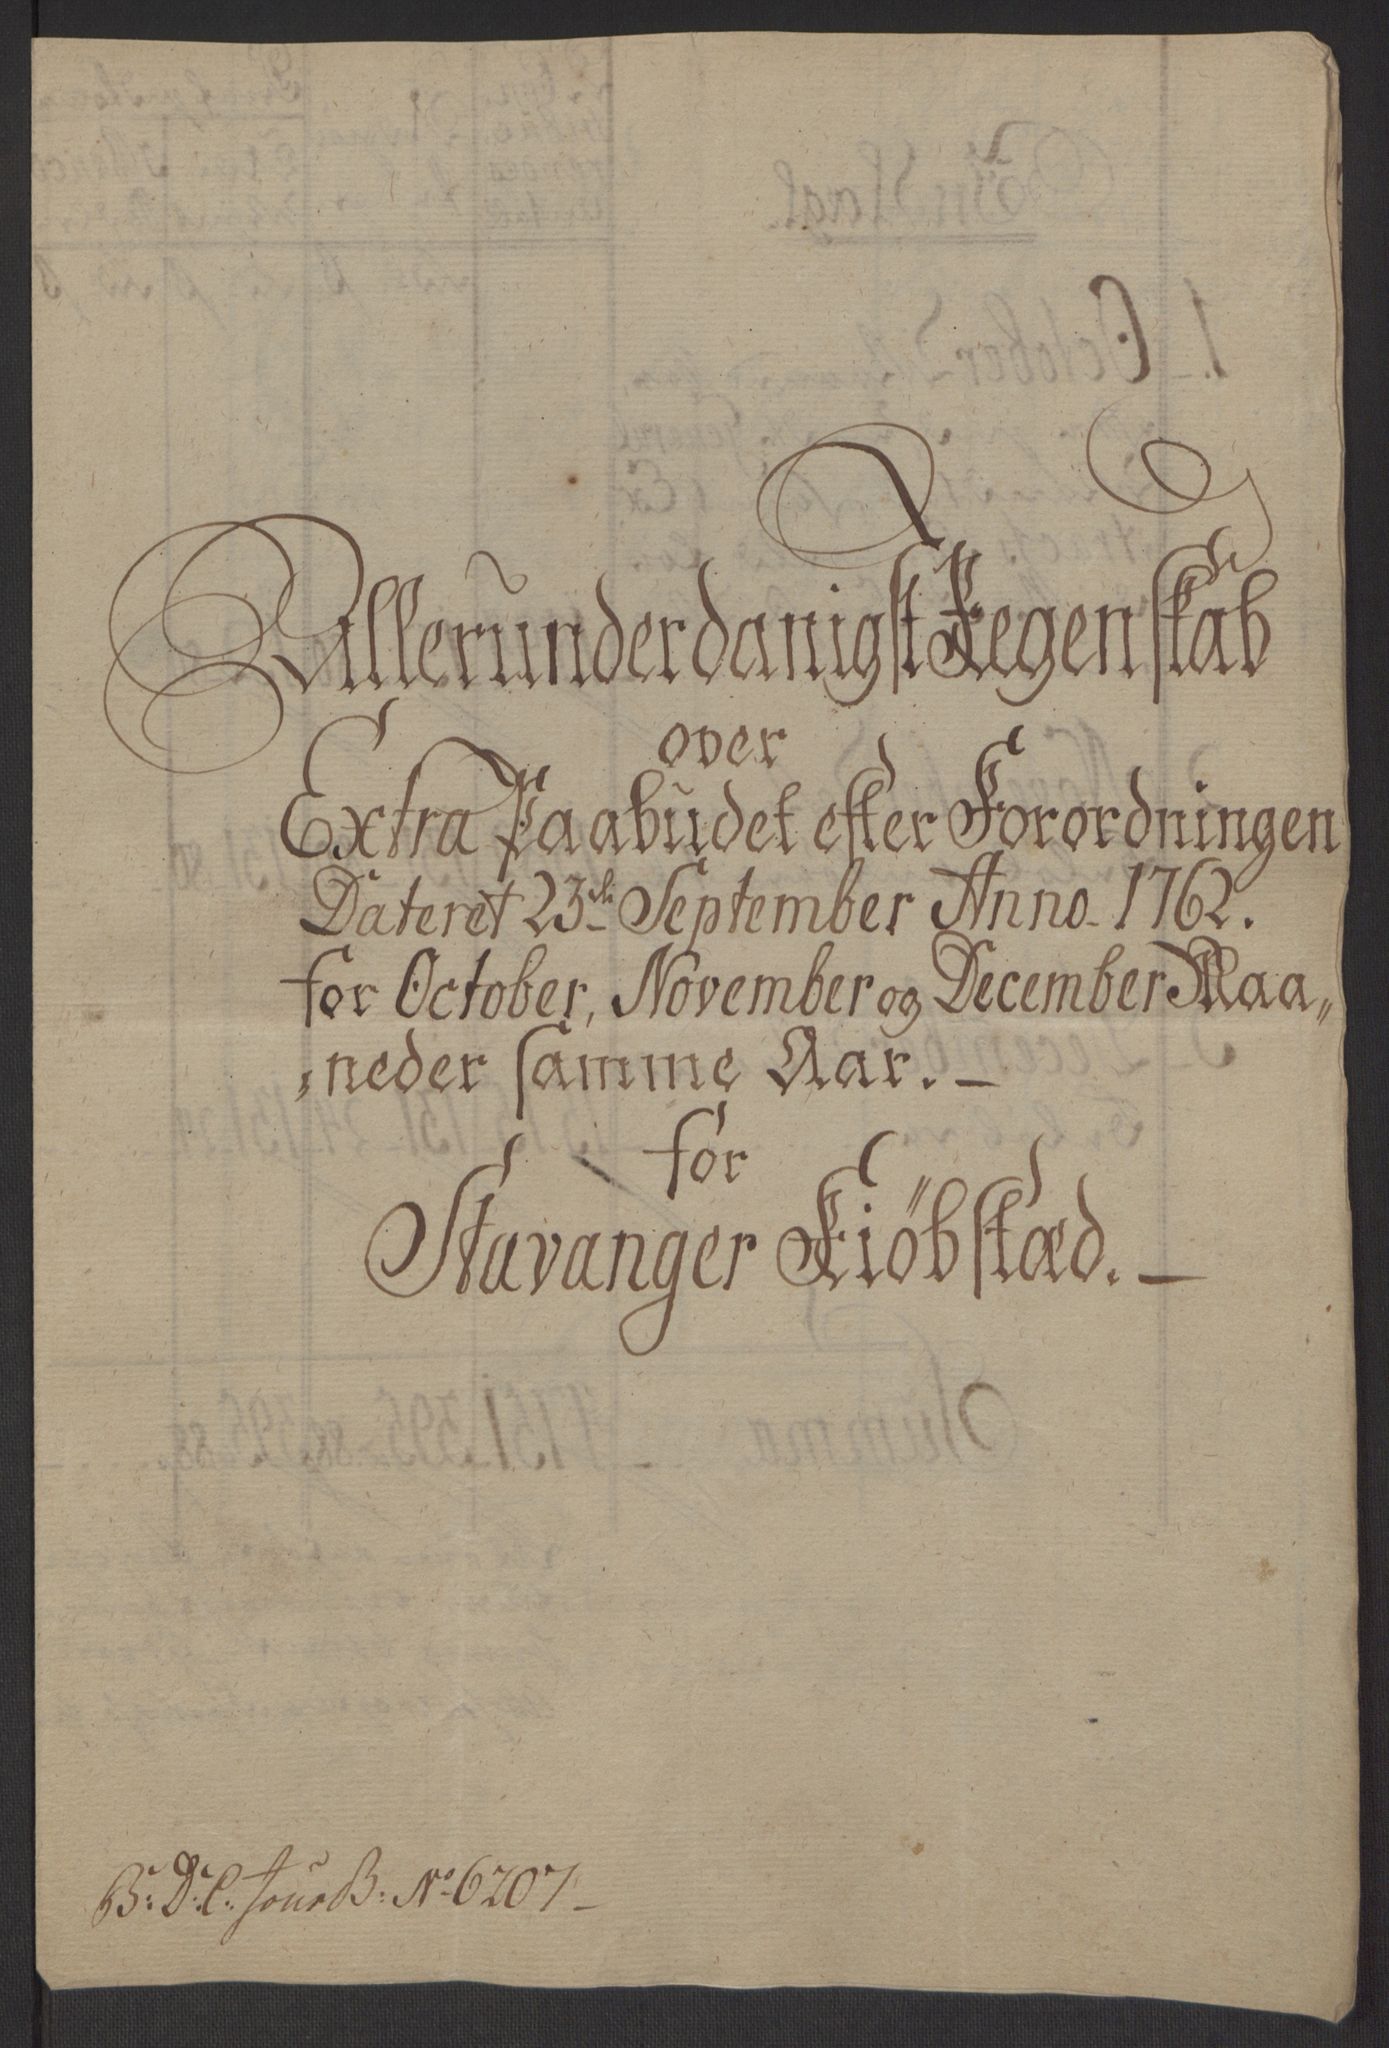 Allerunderdanigst Regenskab
over
Extra Paabudet efter Forordningen
Dateret 23de September Anno 1762.
for October, November og December Maa„
„neder samme Aar. –
for
Stavanger Kiöbstæd. –
B: D: C: Jour B: No 6207 –